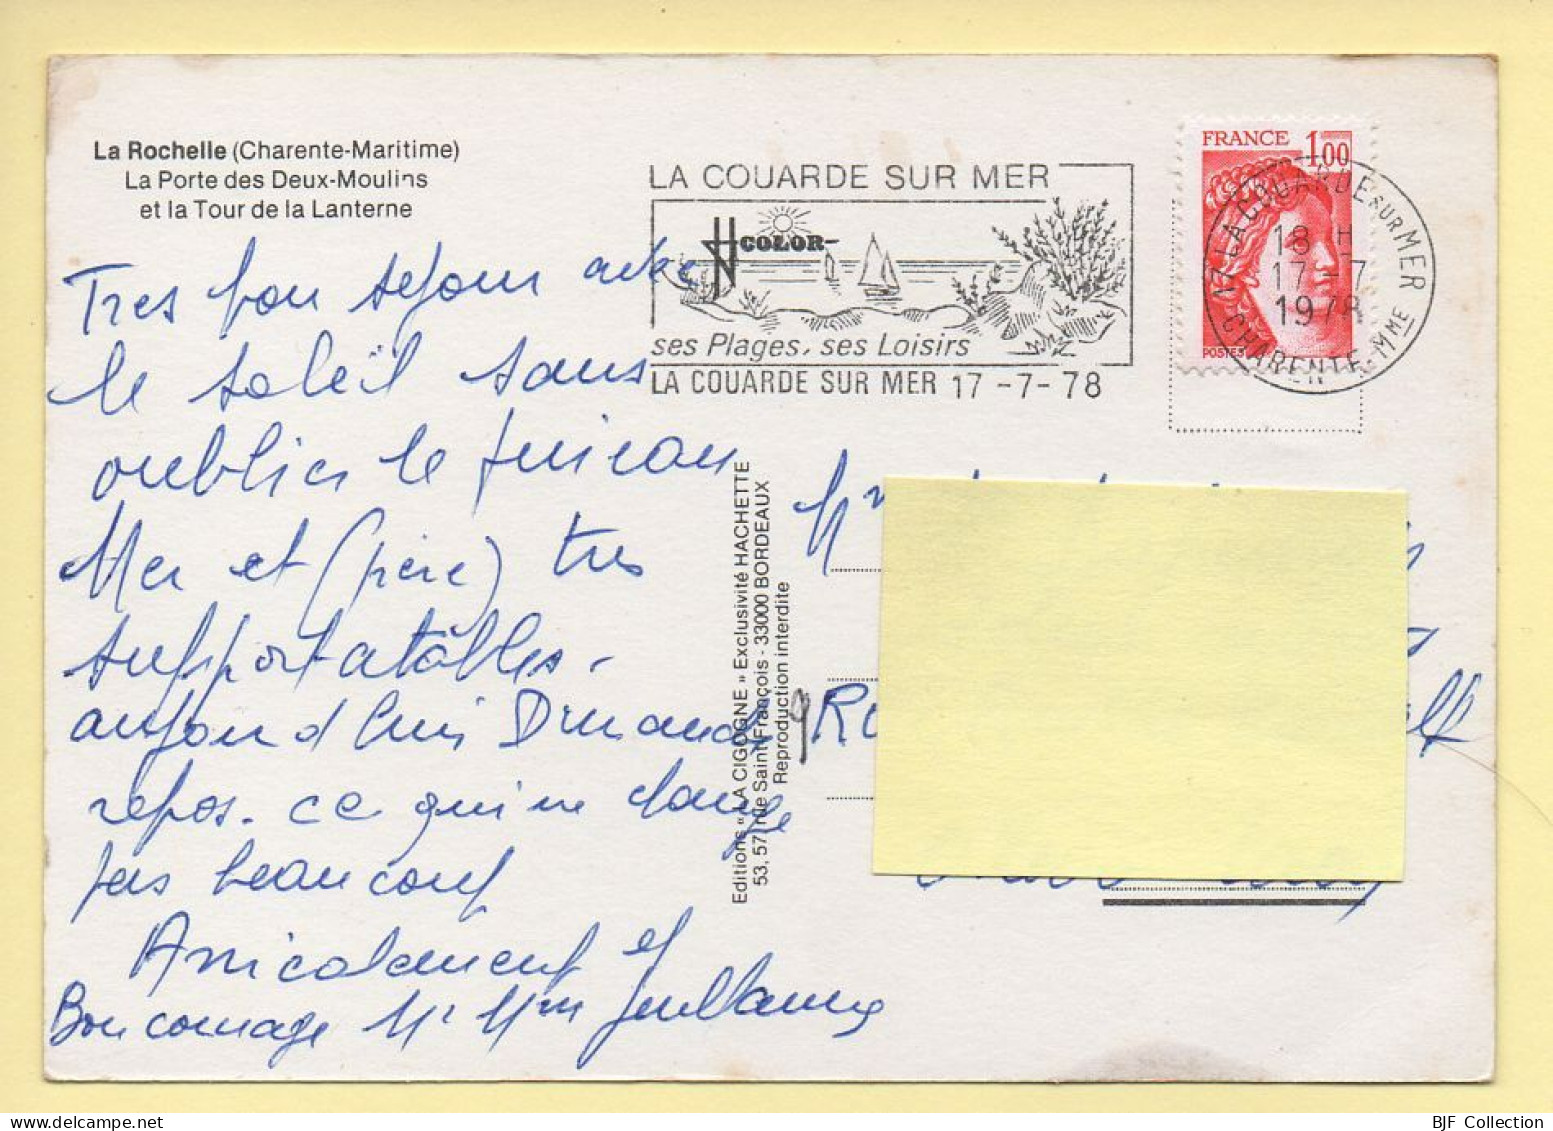 La Rochelle (Charente-Maritime)
La Porte des Deux-Moulins
et la Tour de la Lanterne
LA COUARDE SUR MER
COLOR
ses Plages, ses Loisirs
LA COUARDE SUR MER 17 -7- 78
FRANCE 1,00
POSTES
17 LA COUARDE SUR MER
18 H
17 -7
1978
CHARENTE-Mme
Tres bon sejour avec
le soleil sans
oublier le
Mer et (pére) tres
supportatables.
aujourd'hui Dimanche
repos. ce qui ne change
pas beaucoup
Amicalement et
Bon courage Mr Mme
Editions « LA CIGOGNE » Exclusivité HACHETTE
53, 57, rue Saint François - 33000 BORDEAUX
Reproduction interdite
9 R
BJF Collection